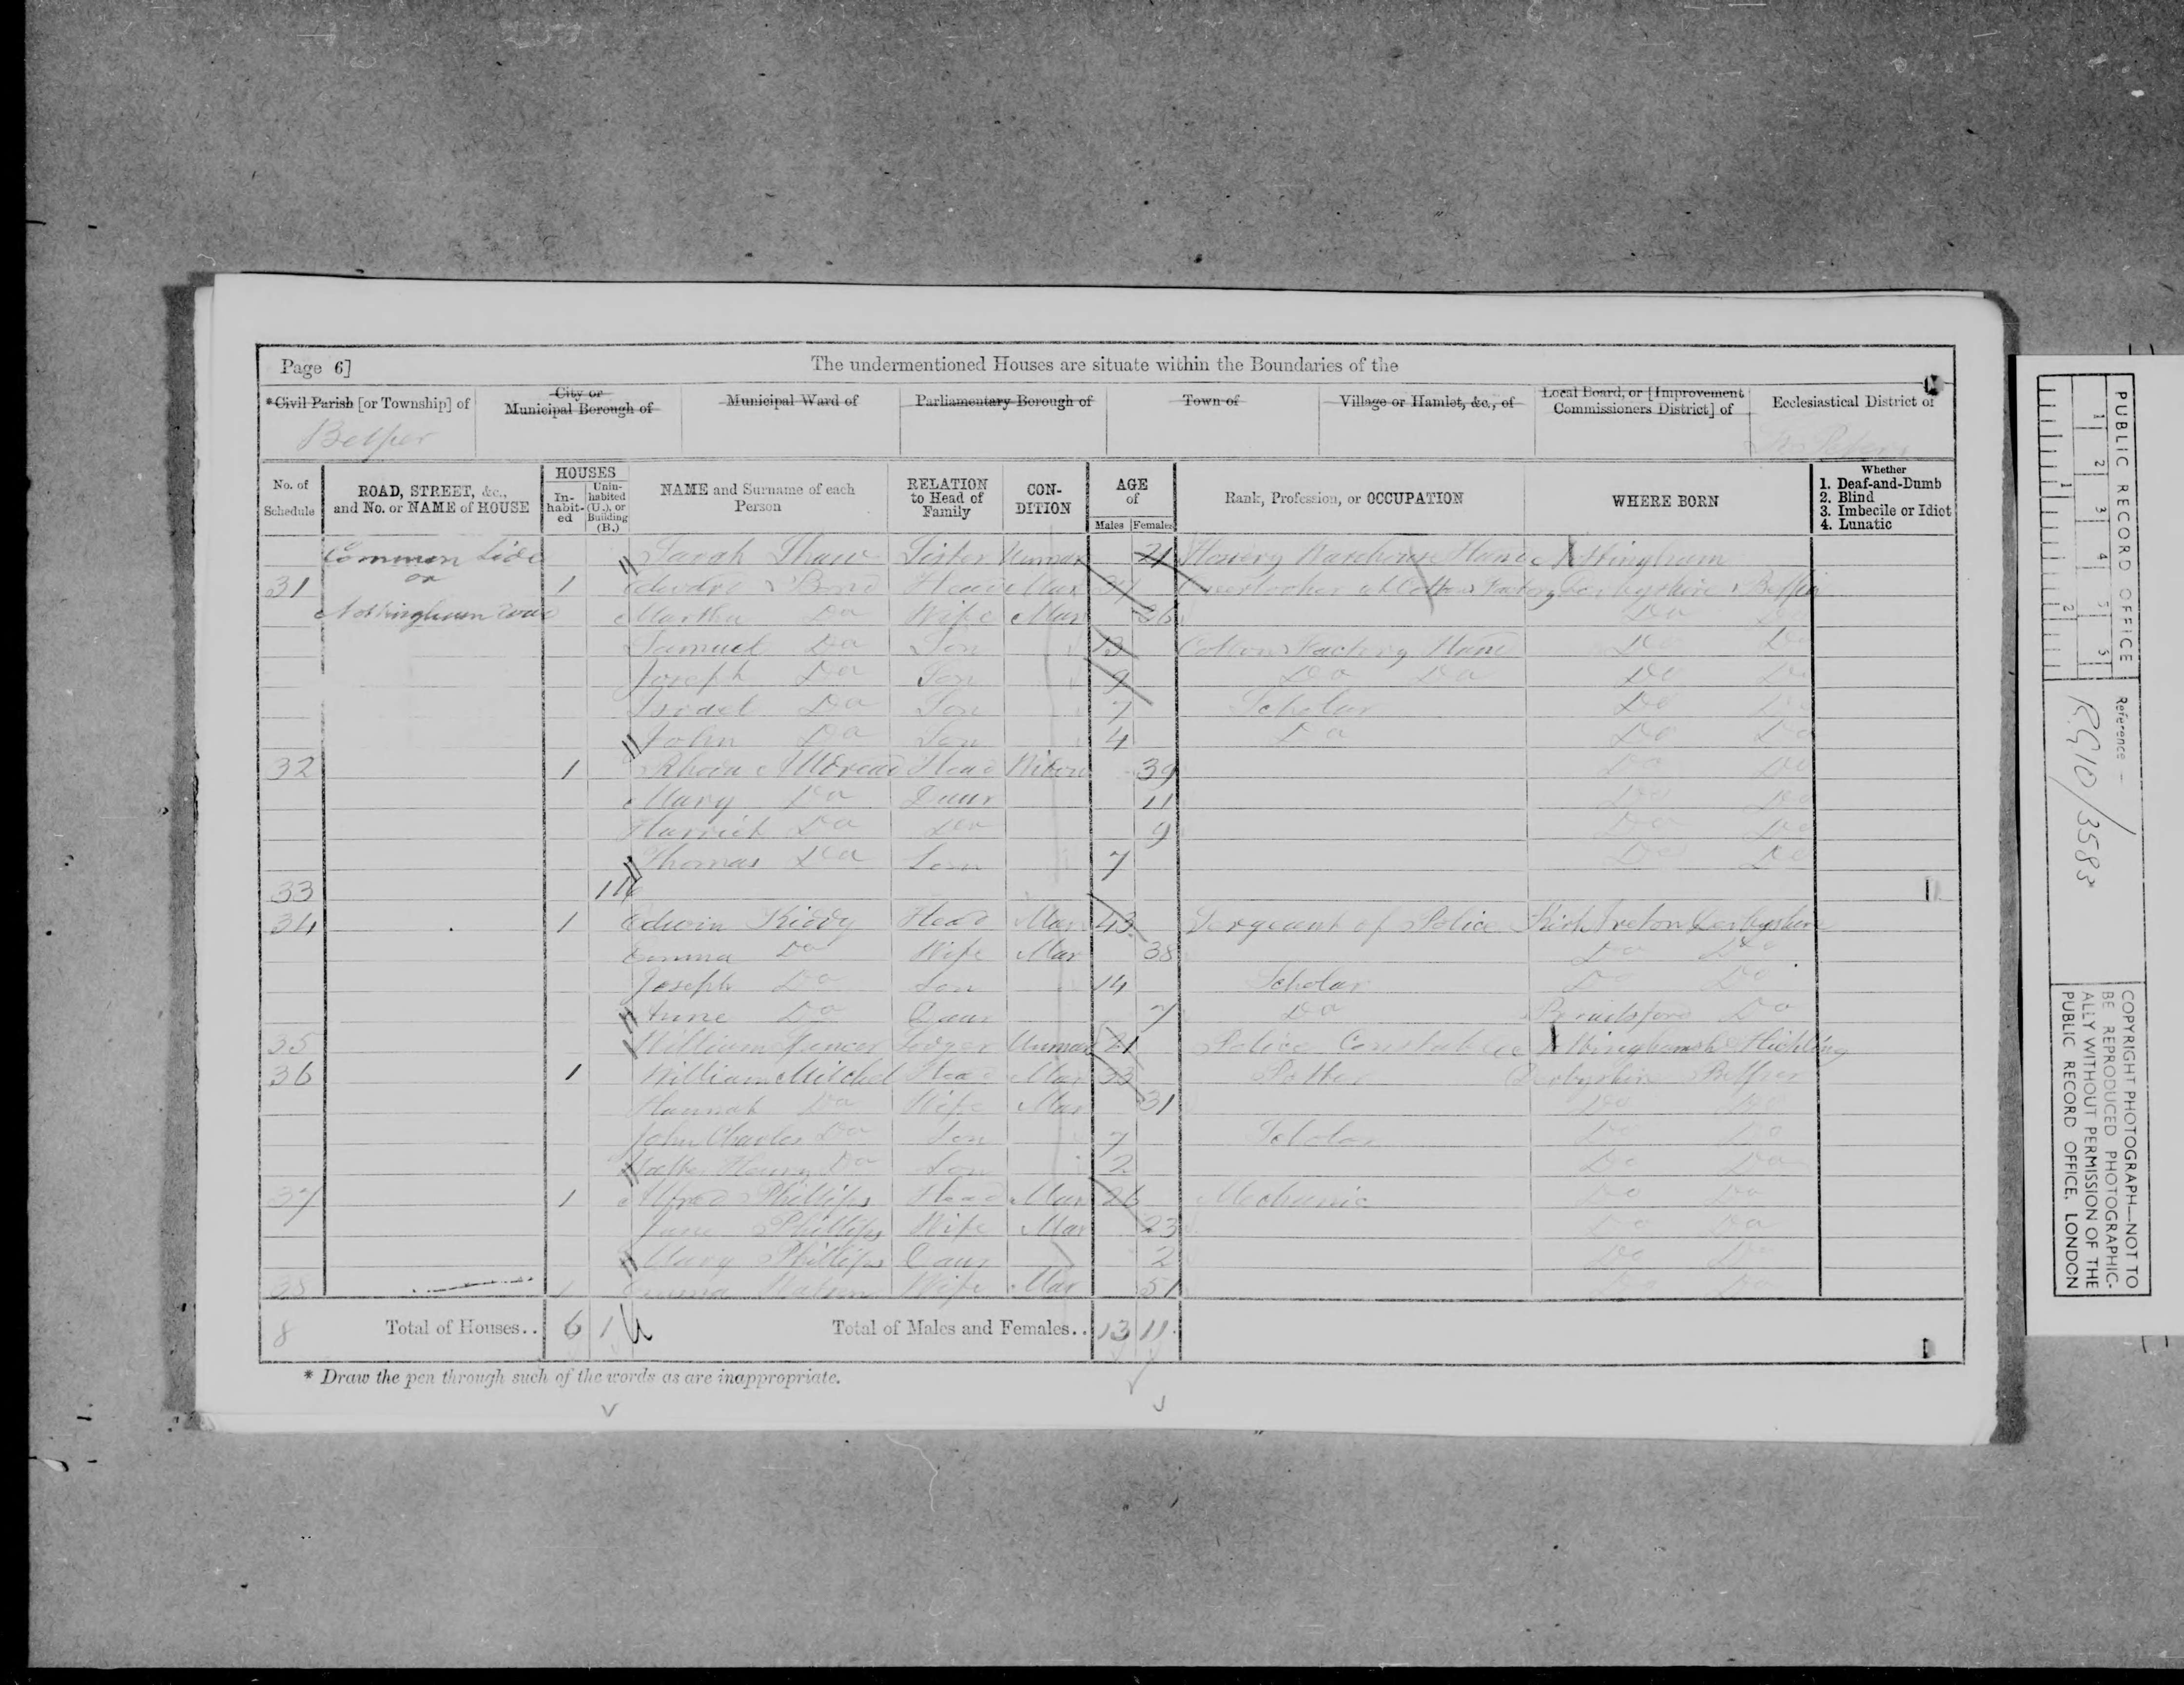 Page 6]
The undermentioned Houses are situate within the Boundaries of the
*Civil Parish [or Township] of
City or Municipal Borough of
Municipal Ward of
Parliamentary Borough of
Town of
Village or Hamlet, &c., of
Local Board, or [Improvement Commissioners District] of
Ecclesiastical District of
Belper
No. of Schedule
ROAD, STREET, &c., and No. or NAME of HOUSE
HOUSES
In-habit-ed
Unin-habited (U.), or Building (B.)
NAME and Surname of each Person
RELATION to Head of Family
CON-DITION
AGE of
Males Females
Rank, Profession, or OCCUPATION
WHERE BORN
Whether
1. Deaf-and-Dumb
2. Blind
3. Imbecile or Idiot
4. Lunatic
Common Side Sarah Shaw Sister Unmar 21 Hosiery Warehouse Hand Nottingham
31 on 1 Bond Head Mar Overlooker at Cotton Factory Derbyshire Belper
Nottingham Martha Do Wife Mar 36 Do Do
Samuel Do Son 13 Cotton Factory Hand Do Do
Joseph Do Son 9 Do Do Do Do
Israel Do Son 7 Scholar Do Do
John Do Son 4 Do Do Do
32 1 Head Widow 39 Do Do
Mary Do Daur 11 Do Do
Harriet Do Do 9 Do Do
Thomas Do Son 7 Do Do
33 1
34 1 Edwin Kiddy Head Mar 43 Sergeant of Police Kirk Ireton Derbyshire
Emma Do Wife Mar 38 Do Do
Joseph Do Son 14 Scholar Do Do
Anne Do Daur 7 Do Brailsford Do
35 William Lodger Unmar 21 Police Constable Hickling
36 1 William Mitchel Head Mar 33 Potter Derbyshire Belper
Hannah Do Wife Mar 31 Do Do
John Charles Do Son 7 Scholar Do Do
Henry Do Son 2 Do Do
37 1 Alfred Phillips Head Mar 26 Mechanic Do Do
Jane Phillips Wife Mar 23 Do Do
Mary Phillips Daur 2 Do Do
38 1 Emma Wife Mar 51 Do Do
8 Total of Houses.. 6 1 Total of Males and Females.. 13 11
* Draw the pen through such of the words as are inappropriate.
PUBLIC RECORD OFFICE
1 2 3 4 5
1 2
Reference —
COPYRIGHT PHOTOGRAPH—NOT TO
BE REPRODUCED PHOTOGRAPHIC-
ALLY WITHOUT PERMISSION OF THE
PUBLIC RECORD OFFICE, LONDON